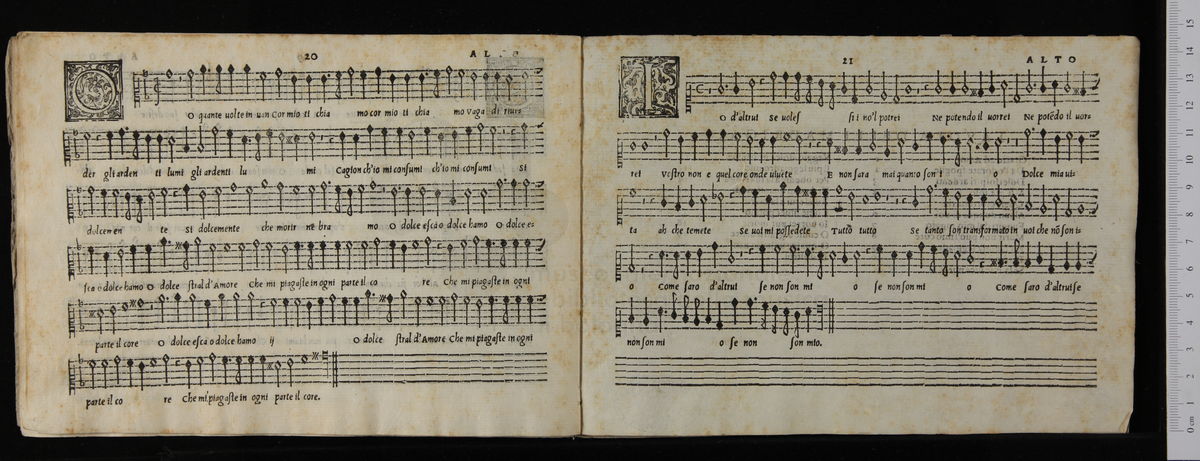 20 ALTO
O quante uolte in uan cor mio ti chia mo cor mio ti chia mo vaga di riuis
der gli arden ti lumi gli ardenti lu mi Cagion ch'io mi consumi ch'io mi consumi si
dolcemen te si dolcemente che morir nē bra mo O dolce esca o dolce hamo O dolce es-
sca o dolce hamo O dolce stral d'Amore Che mi piagaste in ogni parte il co re, Che mi piagaste in ogni
parte il core O dolce esca o dolce hamo ij O dolce stral d'Amore Che mi piagaste in ogni
parte il co re Che mi piagaste in ogni parte il core.
21 ALTO
IO d'altrui se uoless si i no'l potrei Ne potendo il uorrei Ne potēdo il uor-
rei Vostro non e quel core onde uiuete E non sara mai quanto son i o Dolce mia ui-
ta ah che temete Se uoi mi possedete Tutto tutto Se tanto son transformato in uoi che nō son i-
o Come saro d'altrui se non son mi o se non son mi o Come saro d'altrui se
non son mi o se non son mio.
0 cm 1 2 3 4 5 6 7 8 9 10 11 12 13 14 15